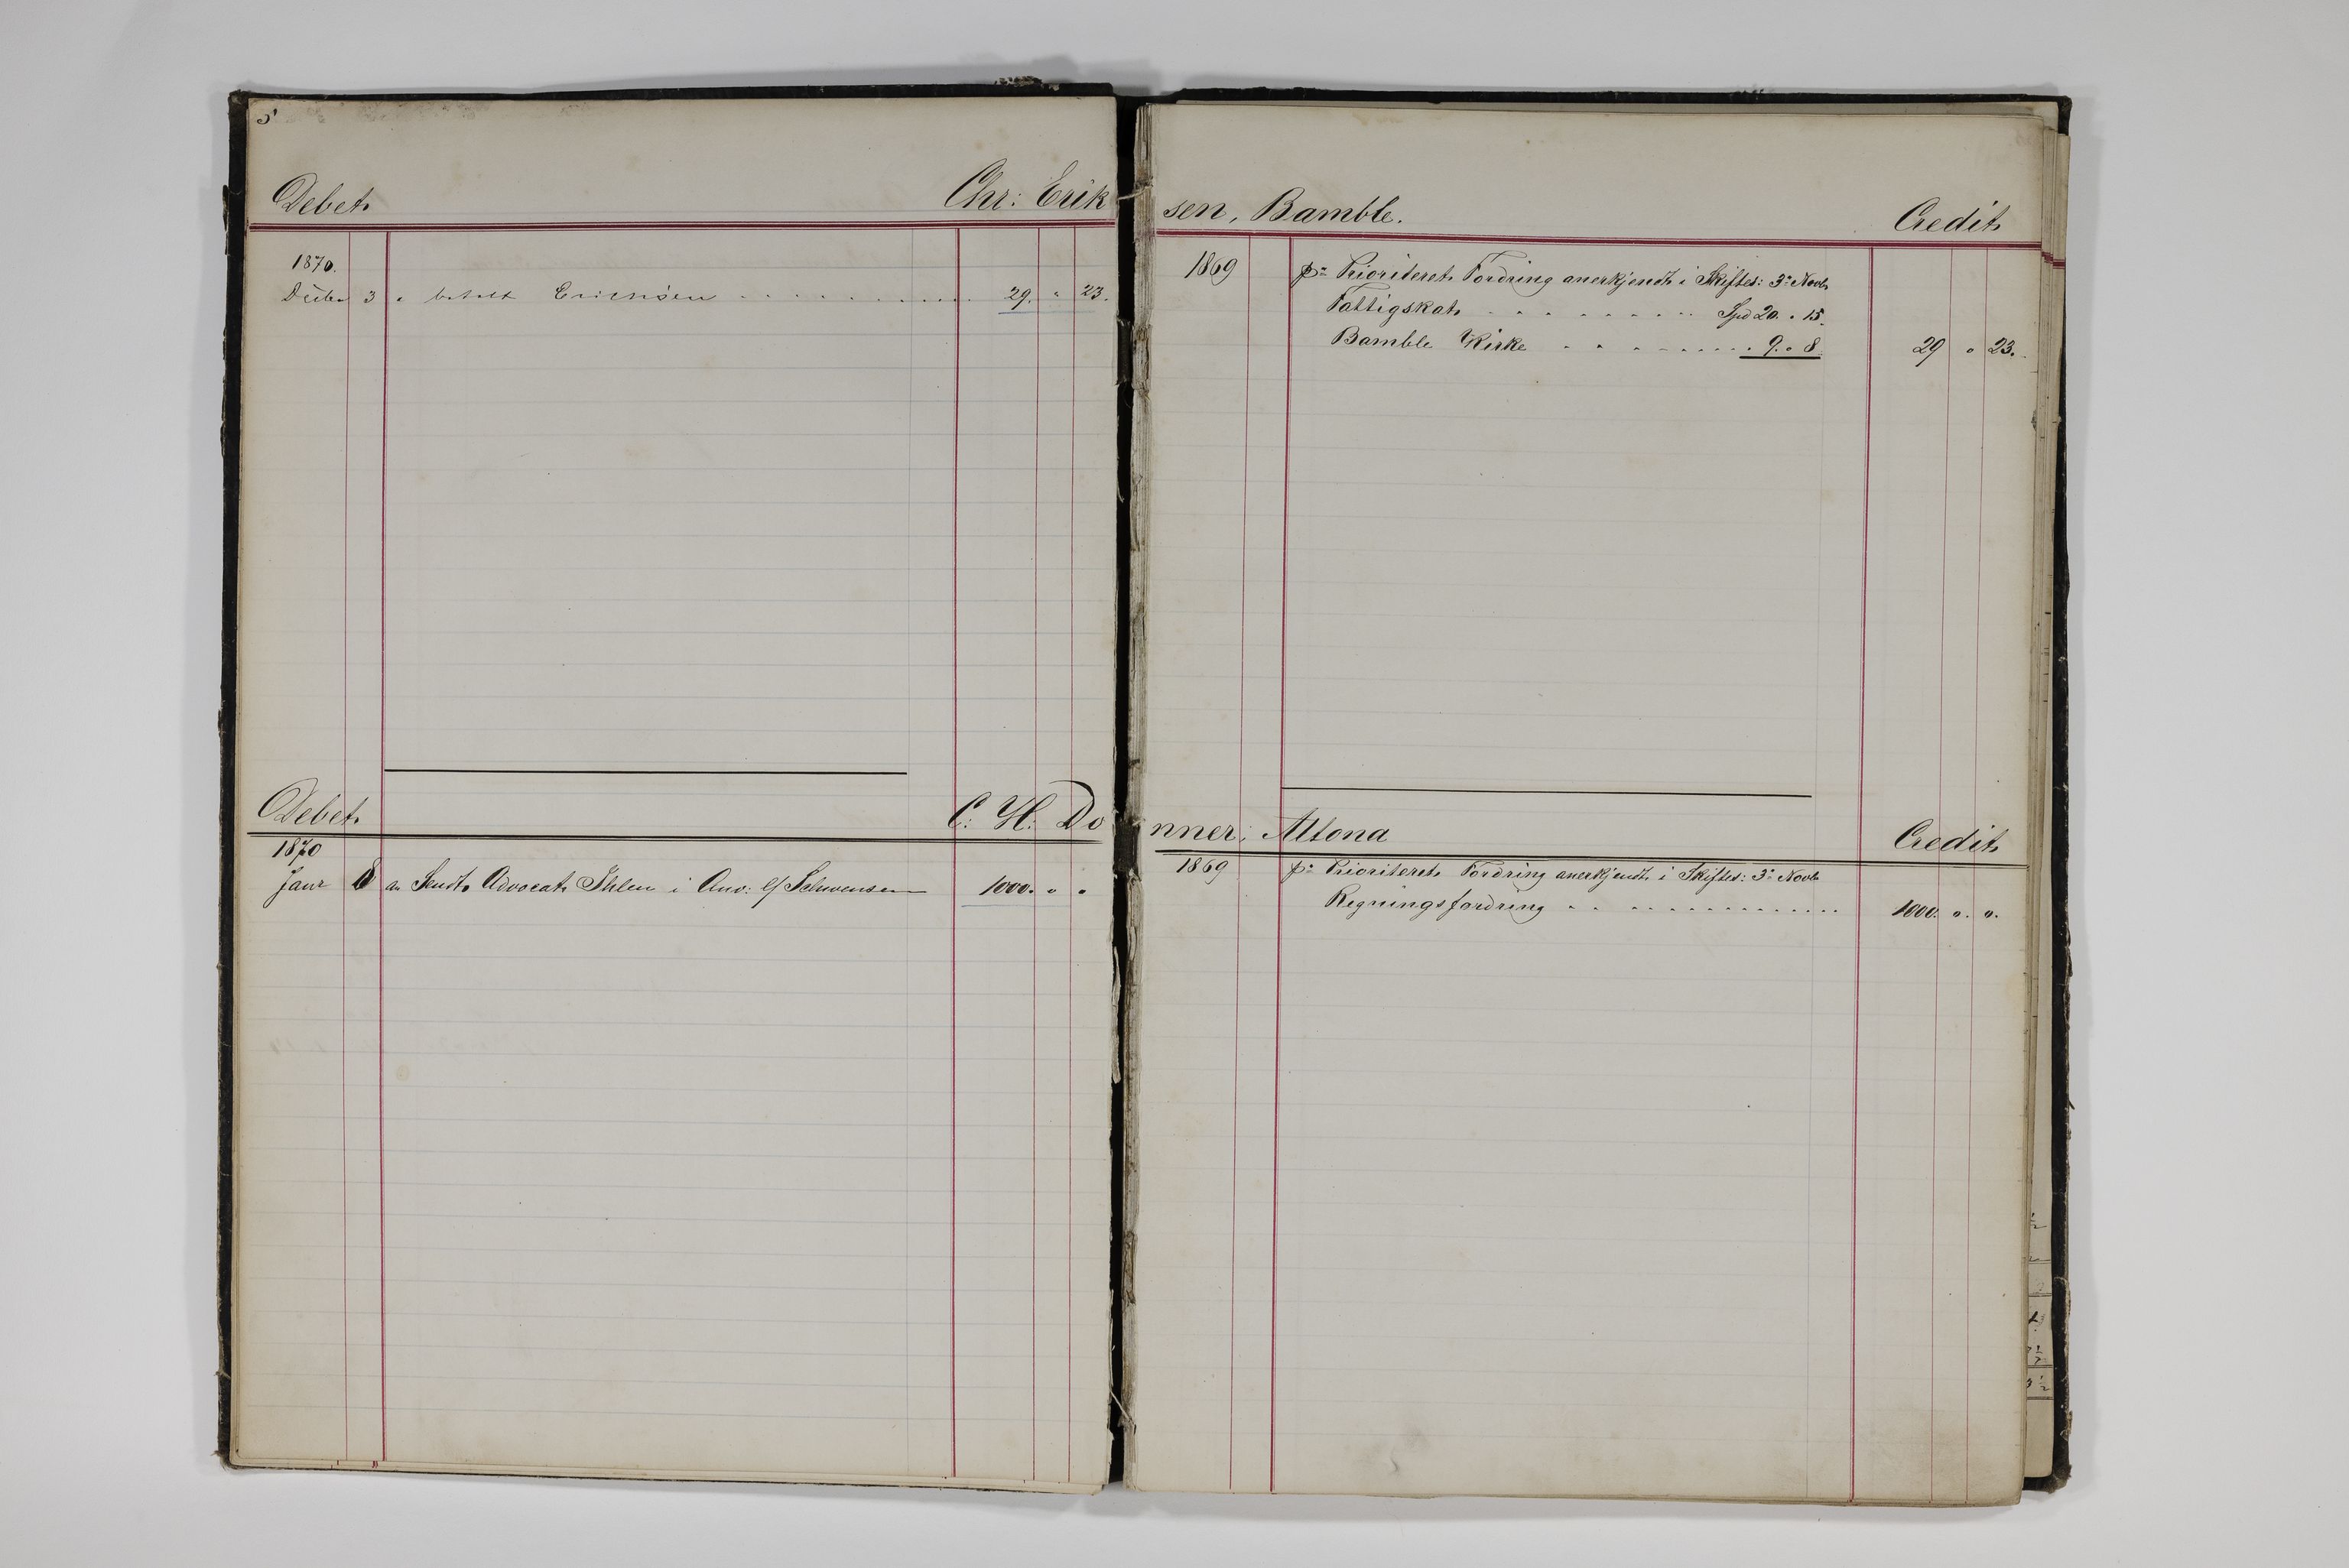 5
Debet Chr: Erik
1870.
3 " betalt Erichsen . . . . . . . . . . . 29. " 23.
Debet C: H: Do
1870
Janr 8 an Sendt Advocat Ihlen i Anv: Schwensen 1000. " "
sen, Bamble. Credit
1869 pr Prioriteret Fordring anerkjendt i Skiftes: 3die Novb
Fattigskat . . . . . . . . . . Spd 20. " 15.
Bamble Kirke . . . . . . . . . . 9. " 8. 29 " 23.
nner, Altona Credit
1869 pr Prioriteret Fordring anerkjendt i Skiftes: 3die Novb
Regningsfordring . . . . . . . . . . . . . . 1000. " "